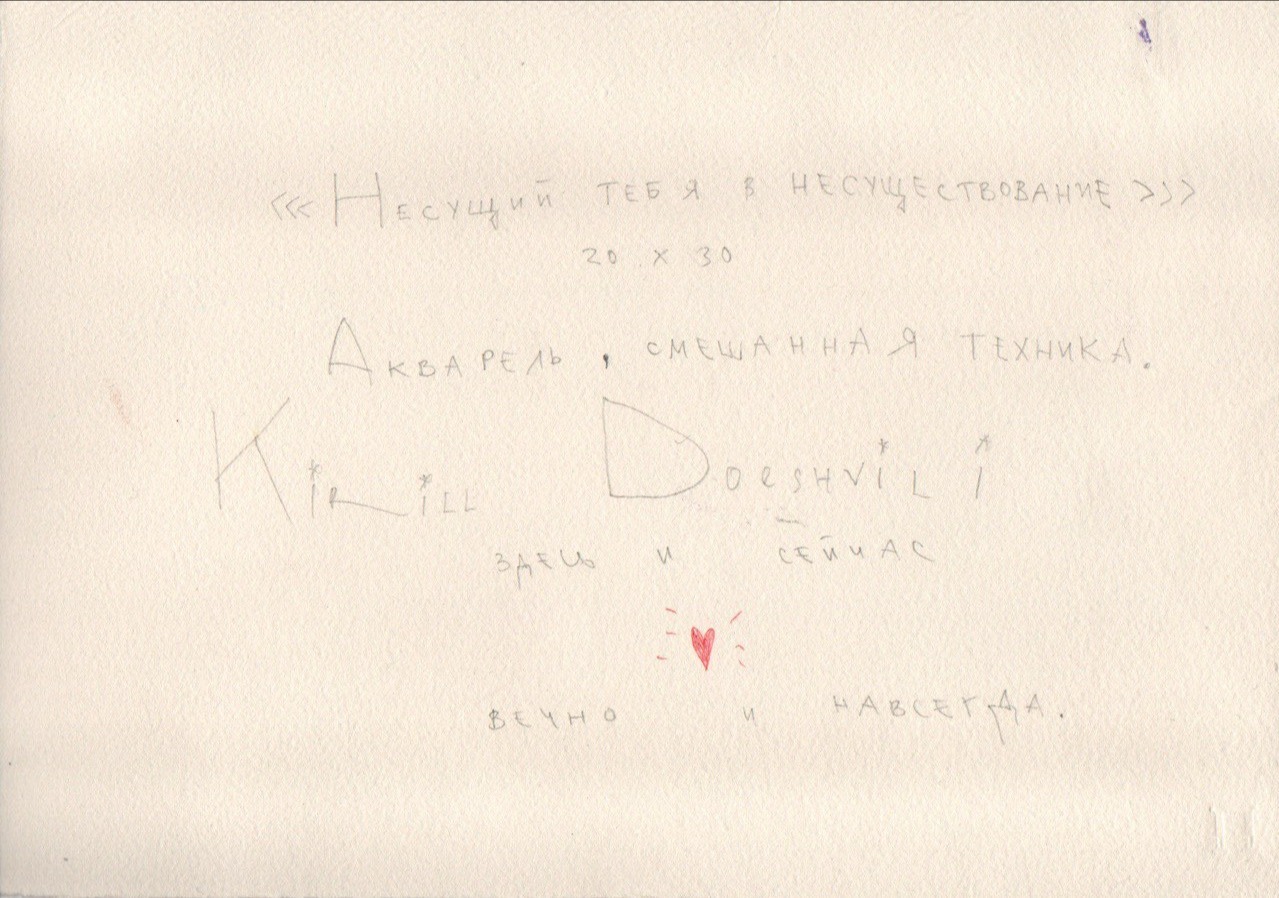 <<< Несущий тебя в несуществование >>>
20 x 30
Акварель, смешанная техника.
Kirill Doeshvili
здець и сейчас
вечно и навсегда.